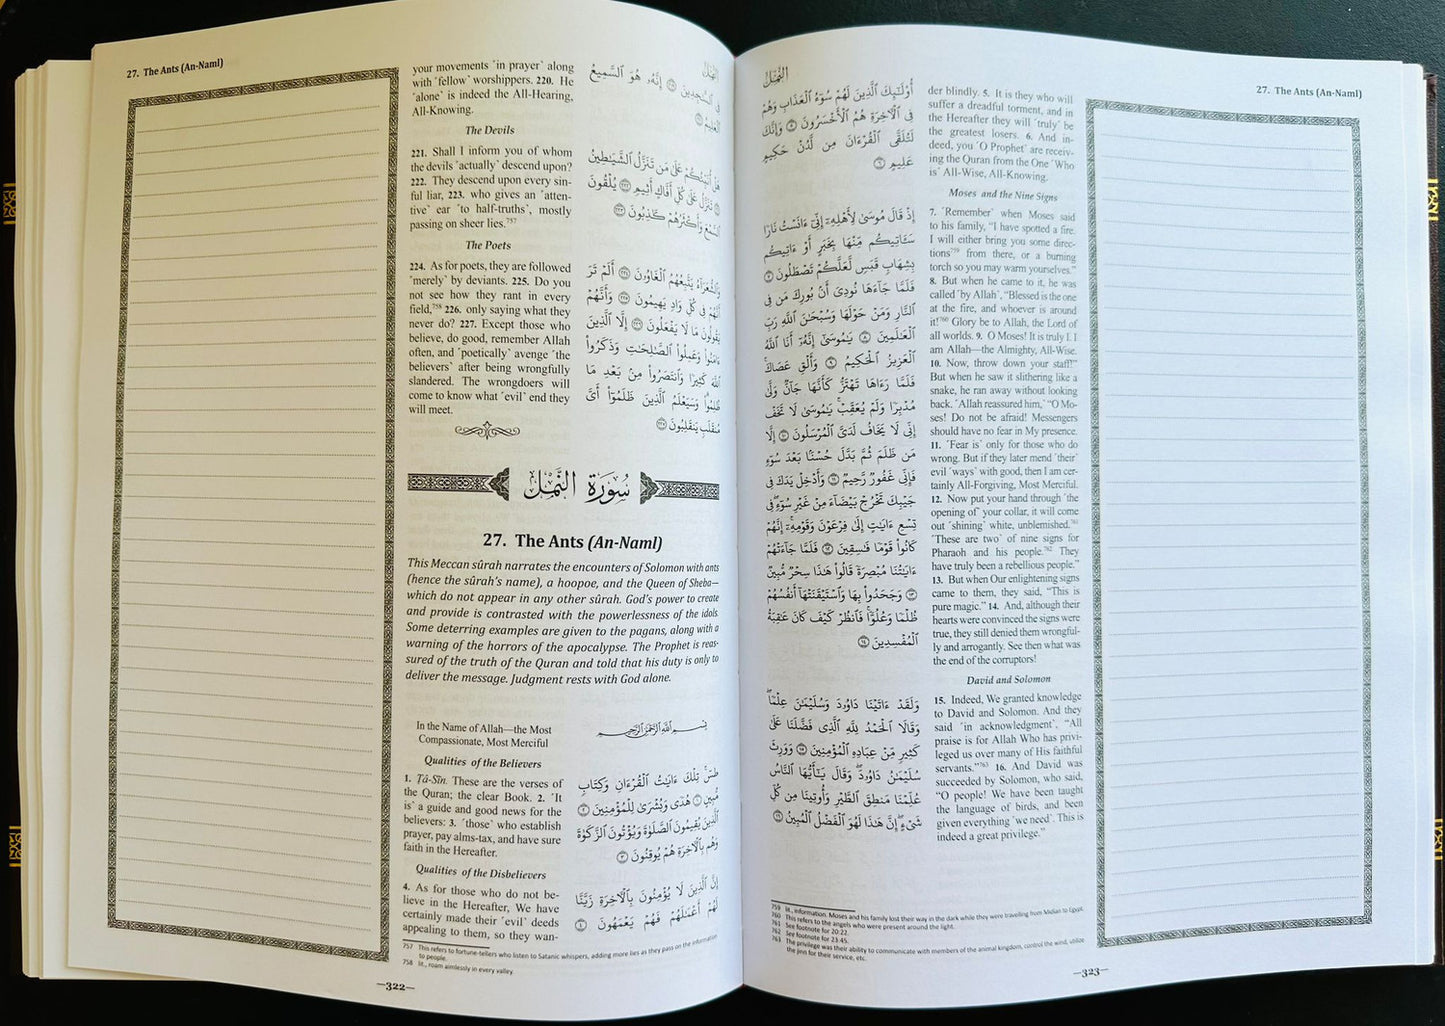 27. The Ants (An-Naml)
your movements ˹in prayer˺ along
with ˹fellow˺ worshippers. 220. He
˹alone˺ is indeed the All-Hearing,
All-Knowing.
The Devils
221. Shall I inform you of whom
the devils ˹actually˺ descend upon?
222. They descend upon every sin-
ful liar, 223. who gives an ˹atten-
tive˺ ear ˹to half-truths˺, mostly
passing on sheer lies.757
The Poets
224. As for poets, they are followed
˹merely˺ by deviants. 225. Do you
not see how they rant in every
field,758 226. only saying what they
never do? 227. Except those who
believe, do good, remember Allah
often, and ˹poetically˺ avenge ˹the
believers˺ after being wrongfully
slandered. The wrongdoers will
come to know what ˹evil˺ end they
will meet.
النَّمل
فِي ٱلسَّٰجِدِينَ ٢١٩ إِنَّهُۥ هُوَ ٱلسَّمِيعُ
ٱلْعَلِيمُ ٢٢٠
هَلْ أُنَبِّئُكُمْ عَلَىٰ مَن تَنَزَّلُ ٱلشَّيَٰطِينُ
٢٢١ تَنَزَّلُ عَلَىٰ كُلِّ أَفَّاكٍ أَثِيمٍ ٢٢٢ يُلْقُونَ
ٱلسَّمْعَ وَأَكْثَرُهُمْ كَٰذِبُونَ ٢٢٣
وَٱلشُّعَرَآءُ يَتَّبِعُهُمُ ٱلْغَاوُۥنَ ٢٢٤ أَلَمْ تَرَ
أَنَّهُمْ فِي كُلِّ وَادٍ يَهِيمُونَ ٢٢٥ وَأَنَّهُمْ
يَقُولُونَ مَا لَا يَفْعَلُونَ ٢٢٦ إِلَّا ٱلَّذِينَ
ءَامَنُوا۟ وَعَمِلُوا۟ ٱلصَّٰلِحَٰتِ وَذَكَرُوا۟
ٱللَّهَ كَثِيرًا وَٱنتَصَرُوا۟ مِنۢ بَعْدِ مَا
ظُلِمُوا۟ وَسَيَعْلَمُ ٱلَّذِينَ ظَلَمُوٓا۟ أَىَّ
مُنقَلَبٍ يَنقَلِبُونَ ٢٢٧
سُورَةُ النَّمْلِ
27. The Ants (An-Naml)
This Meccan sûrah narrates the encounters of Solomon with ants
(hence the sûrah’s name), a hoopoe, and the Queen of Sheba—
which do not appear in any other sûrah. God’s power to create
and provide is contrasted with the powerlessness of the idols.
Some deterring examples are given to the pagans, along with a
warning of the horrors of the apocalypse. The Prophet is reas-
sured of the truth of the Quran and told that his duty is only to
deliver the message. Judgment rests with God alone.
In the Name of Allah—the Most
Compassionate, Most Merciful
Qualities of the Believers
1. Ṭâ-Sĩn. These are the verses of
the Quran; the clear Book. 2. ˹It
is˺ a guide and good news for the
believers: 3. ˹those˺ who establish
prayer, pay alms-tax, and have sure
faith in the Hereafter.
Qualities of the Disbelievers
4. As for those who do not be-
lieve in the Hereafter, We have
certainly made their ˹evil˺ deeds
appealing to them, so they wan-
بِسْمِ ٱللَّهِ ٱلرَّحْمَٰنِ ٱلرَّحِيمِ
طسٓ تِلْكَ ءَايَٰتُ ٱلْقُرْءَانِ وَكِتَابٍ
مُّبِينٍ ١ هُدًى وَبُشْرَىٰ لِلْمُؤْمِنِينَ ٢
ٱلَّذِينَ يُقِيمُونَ ٱلصَّلَوٰةَ وَيُؤْتُونَ ٱلزَّكَوٰةَ
وَهُم بِٱلْءَاخِرَةِ هُمْ يُوقِنُونَ ٣
إِنَّ ٱلَّذِينَ لَا يُؤْمِنُونَ بِٱلْءَاخِرَةِ زَيَّنَّا
لَهُمْ أَعْمَٰلَهُمْ فَهُمْ يَعْمَهُونَ ٤
757 This refers to fortune-tellers who listen to Satanic whispers, adding more lies as they pass on the information
to people.
758 lit., roam aimlessly in every valley.
—322—
النَّمل
أُو۟لَٰٓئِكَ ٱلَّذِينَ لَهُمْ سُوٓءُ ٱلْعَذَابِ وَهُمْ
فِي ٱلْءَاخِرَةِ هُمُ ٱلْأَخْسَرُونَ ٥ وَإِنَّكَ
لَتُلَقَّى ٱلْقُرْءَانَ مِن لَّدُنْ حَكِيمٍ
عَلِيمٍ ٦
إِذْ قَالَ مُوسَىٰ لِأَهْلِهِۦٓ إِنِّىٓ ءَانَسْتُ نَارًا
سَـَٔاتِيكُم مِّنْهَا بِخَبَرٍ أَوْ ءَاتِيكُم
بِشِهَابٍ قَبَسٍ لَّعَلَّكُمْ تَصْطَلُونَ ٧
فَلَمَّا جَآءَهَا نُودِىَ أَنۢ بُورِكَ مَن فِى
ٱلنَّارِ وَمَنْ حَوْلَهَا وَسُبْحَٰنَ ٱللَّهِ رَبِّ
ٱلْعَٰلَمِينَ ٨ يَٰمُوسَىٰٓ إِنَّهُۥٓ أَنَا ٱللَّهُ
ٱلْعَزِيزُ ٱلْحَكِيمُ ٩ وَأَلْقِ عَصَاكَ
فَلَمَّا رَءَاهَا تَهْتَزُّ كَأَنَّهَا جَآنٌّ وَلَّىٰ
مُدْبِرًا وَلَمْ يُعَقِّبْ يَٰمُوسَىٰ لَا تَخَفْ
إِنِّى لَا يَخَافُ لَدَىَّ ٱلْمُرْسَلُونَ ١٠ إِلَّا
مَن ظَلَمَ ثُمَّ بَدَّلَ حُسْنًۢا بَعْدَ سُوٓءٍ
فَإِنِّى غَفُورٌ رَّحِيمٌ ١١ وَأَدْخِلْ يَدَكَ فِى
جَيْبِكَ تَخْرُجْ بَيْضَآءَ مِنْ غَيْرِ سُوٓءٍ فِى
تِسْعِ ءَايَٰتٍ إِلَىٰ فِرْعَوْنَ وَقَوْمِهِۦٓ إِنَّهُمْ
كَانُوا۟ قَوْمًا فَٰسِقِينَ ١٢ فَلَمَّا جَآءَتْهُمْ
ءَايَٰتُنَا مُبْصِرَةً قَالُوا۟ هَٰذَا سِحْرٌ مُّبِينٌ
١٣ وَجَحَدُوا۟ بِهَا وَٱسْتَيْقَنَتْهَآ أَنفُسُهُمْ
ظُلْمًا وَعُلُوًّا فَٱنظُرْ كَيْفَ كَانَ عَٰقِبَةُ
ٱلْمُفْسِدِينَ ١٤
وَلَقَدْ ءَاتَيْنَا دَاوُۥدَ وَسُلَيْمَٰنَ عِلْمًا
وَقَالَا ٱلْحَمْدُ لِلَّهِ ٱلَّذِى فَضَّلَنَا عَلَىٰ
كَثِيرٍ مِّنْ عِبَادِهِ ٱلْمُؤْمِنِينَ ١٥ وَوَرِثَ
سُلَيْمَٰنُ دَاوُۥدَ وَقَالَ يَٰٓأَيُّهَا ٱلنَّاسُ
عُلِّمْنَا مَنطِقَ ٱلطَّيْرِ وَأُوتِينَا مِن كُلِّ
شَىْءٍ إِنَّ هَٰذَا لَهُوَ ٱلْفَضْلُ ٱلْمُبِينُ ١٦
27. The Ants (An-Naml)
der blindly. 5. It is they who will
suffer a dreadful torment, and in
the Hereafter they will ˹truly˺ be
the greatest losers. 6. And in-
deed, you ˹O Prophet˺ are receiv-
ing the Quran from the One ˹Who
is˺ All-Wise, All-Knowing.
Moses and the Nine Signs
7. ˹Remember˺ when Moses said
to his family, “I have spotted a fire.
I will either bring you some direc-
tions759 from there, or a burning
torch so you may warm yourselves.”
8. But when he came to it, he was
called ˹by Allah˺, “Blessed is the one
at the fire, and whoever is around
it!760 Glory be to Allah, the Lord of
all worlds. 9. O Moses! It is truly I. I
am Allah—the Almighty, All-Wise.
10. Now, throw down your staff!”
But when he saw it slithering like a
snake, he ran away without looking
back. ˹Allah reassured him,˺ “O Mo-
ses! Do not be afraid! Messengers
should have no fear in My presence.
11. ˹Fear is˺ only for those who do
wrong. But if they later mend ˹their˺
evil ˹ways˺ with good, then I am cer-
tainly All-Forgiving, Most Merciful.
12. Now put your hand through ˹the
opening of˺ your collar, it will come
out ˹shining˺ white, unblemished.761
˹These are two˺ of nine signs for
Pharaoh and his people.762 They
have truly been a rebellious people.”
13. But when Our enlightening signs
came to them, they said, “This is
pure magic.” 14. And, although their
hearts were convinced the signs were
true, they still denied them wrongful-
ly and arrogantly. See then what was
the end of the corruptors!
David and Solomon
15. Indeed, We granted knowledge
to David and Solomon. And they
said ˹in acknowledgment˺, “All
praise is for Allah Who has privi-
leged us over many of His faithful
servants.”763 16. And David was
succeeded by Solomon, who said,
“O people! We have been taught
the language of birds, and been
given everything ˹we need˺. This is
indeed a great privilege.”
759 lit., information. Moses and his family lost their way in the dark while they were travelling from Midian to Egypt.
760 This refers to the angels who were present around the light.
761 See footnote for 20:22.
762 See footnote for 23:45.
763 The privilege was their ability to communicate with members of the animal kingdom, control the wind, utilize
the jinn for their service, etc.
—323—